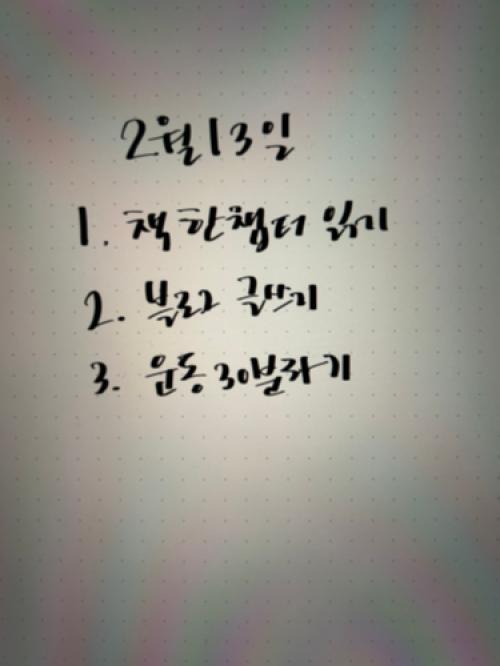 2월 13일
1. 책 한챕터 읽기
2. 블로그 글쓰기
3. 운동 30분하기